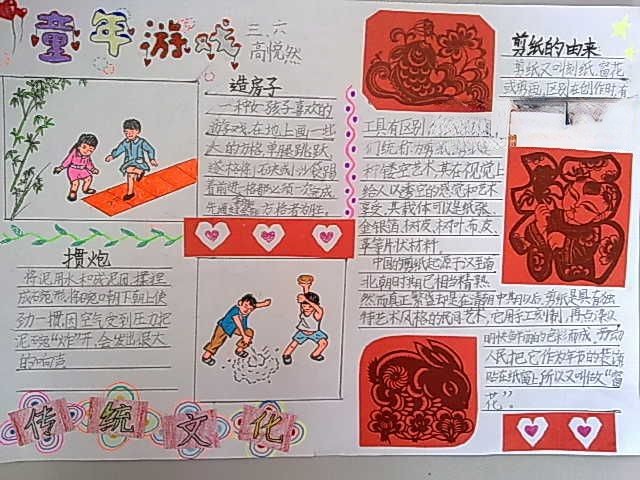 童年游戏
三、六
高悦然
造房子
一种女孩子喜欢的
游戏,在地上画一些
大的方格,单腿跳跃,
先通过者为胜。
掼炮
将泥用水和成泥团,摆捏
成碗形,将碗口朝下朝上使
劲一掼,因空气受到压力把
泥碗“炸”开,会发出很大
的响声
传统文化
剪纸的由来
剪纸又叫刻纸,窗花
或剪画,区别在创作时,有
工具有区别
种镂空艺术,其在视觉上
给人以透空的感觉和艺术
享受,其载体可以是纸张、
金银箔、树皮、树叶、布、皮、
革等片状材料。
中国的剪纸起源于汉,至南
北朝时期已相当精熟,
然而真正繁盛却是在清朝中期以后,剪纸是具有独
特艺术风格的民间艺术,它用手工刻制,再
明快鲜丽的色彩而成,劳动
人民把它作为年节的装饰
贴在纸窗上,所以又叫做“窗
花”。